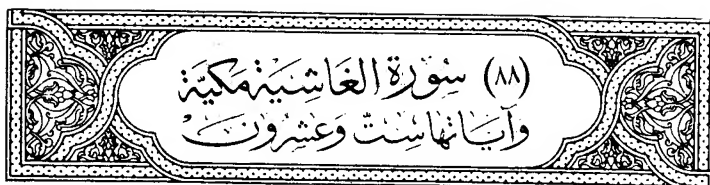 (٨٨) سُورَة الغَاشِيَة مَكيّة
وَآيَاتهَا سِتّ وَعشرُونَ